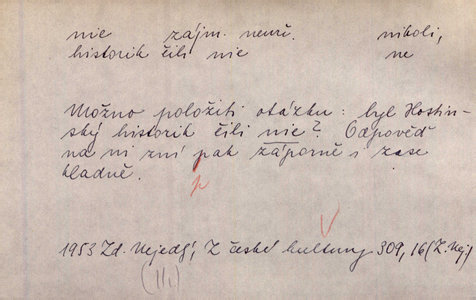 nie zájm. neurč. nikoli,
historik čili nie ne
Možno položiti otázku: byl Hostin-
ský historik čili nie? Odpověď
na ni zní pak záporně i zase
kladně.
p
1953 Zd. Nejedlý, Z české kultury 309, 16 (Z. Nej)
(II.)